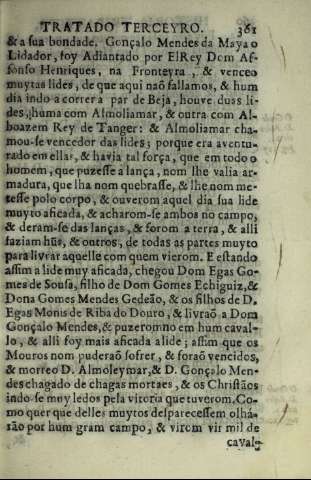 TRATADO TERCEYRO. 361
& a sua bondade. Gonçalo Mendes da Maya o
Lidador, foy Adiantado por ElRey Dom Af-
fonso Henriques, na Fronteyra, & venceo
muytas lides, de que aqui naõ fallamos, & hum
dia indo a correr a par de Beja, houve duas li-
des, huma com Almoliamar, & outra com Al-
boazem Rey de Tanger: & Almoliamar cha-
mou-se vencedor das lides; porque era aventu-
rado em ellas, & havia tal força, que em todo o
homem, que puzesse a lança, nom lhe valia ar-
madura, que lha nom quebrasse, & lhe nom me-
tesse polo corpo, & ouverom aquel dia sua lide
muyto aficada, & acharom-se ambos no campo,
& deram-se das lanças, & forom a terra, & alli
faziam hũs, & outros, de todas as partes muyto
para livrar aquelle com quem vierom. E estando
assim a lide muy aficada, chegou Dom Egas Go-
mes de Sousa, filho de Dom Gomes Echiguiz, &
Dona Gomes Mendes Gedeão, & os filhos de D.
Egas Monis de Riba do Douro, & livraõ a Dom
Gonçalo Mendes, & puzerom no em hum caval-
lo, & alli foy mais aficada a lide; assim que os
Mouros nom puderaõ sofrer, & foraõ vencidos,
& morreo D. Almoleymar, & D. Gonçalo Men-
des chagado de chagas mortaes, & os Christãos
indo-se muy ledos pela vitoria que tuverom. Co-
mo quer que delles muytos desparecessem olhá-
rão por hum gram campo, & virom vir mil de
caval-